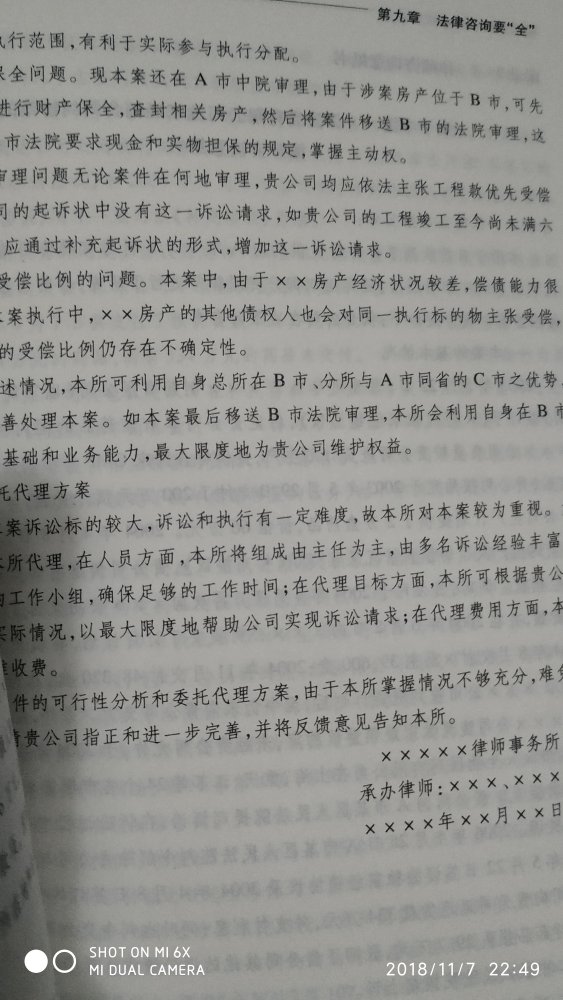 第九章 法律咨询要“全”
执行范围,有利于实际参与执行分配。
保全问题。现本案还在 A 市中院审理,由于涉案房产位于 B 市,可先
进行财产保全,查封相关房产,然后将案件移送 B 市的法院审理,这
市法院要求现金和实物担保的规定,掌握主动权。
审理问题无论案件在何地审理,贵公司均应依法主张工程款优先受偿
司的起诉状中没有这一诉讼请求,如贵公司的工程竣工至今尚未满六
应通过补充起诉状的形式,增加这一诉讼请求。
受偿比例的问题。本案中,由于××房产经济状况较差,偿债能力很
本案执行中,××房产的其他债权人也会对同一执行标的物主张受偿,
的受偿比例仍存在不确定性。
述情况,本所可利用自身总所在 B 市、分所与 A 市同省的 C 市之优势,
善处理本案。如本案最后移送 B 市法院审理,本所会利用自身在 B 市
基础和业务能力,最大限度地为贵公司维护权益。
托代理方案
案诉讼标的较大,诉讼和执行有一定难度,故本所对本案较为重视。
本所代理,在人员方面,本所将组成由主任为主,由多名诉讼经验丰富
的工作小组,确保足够的工作时间;在代理目标方面,本所可根据贵公
实际情况,以最大限度地帮助公司实现诉讼请求;在代理费用方面,本
准收费。
件的可行性分析和委托代理方案,由于本所掌握情况不够充分,难免
请贵公司指正和进一步完善,并将反馈意见告知本所。
×××××律师事务所
承办律师:×××、×××
××××年××月××日
SHOT ON MI 6X
MI DUAL CAMERA
2018/11/7 22:49